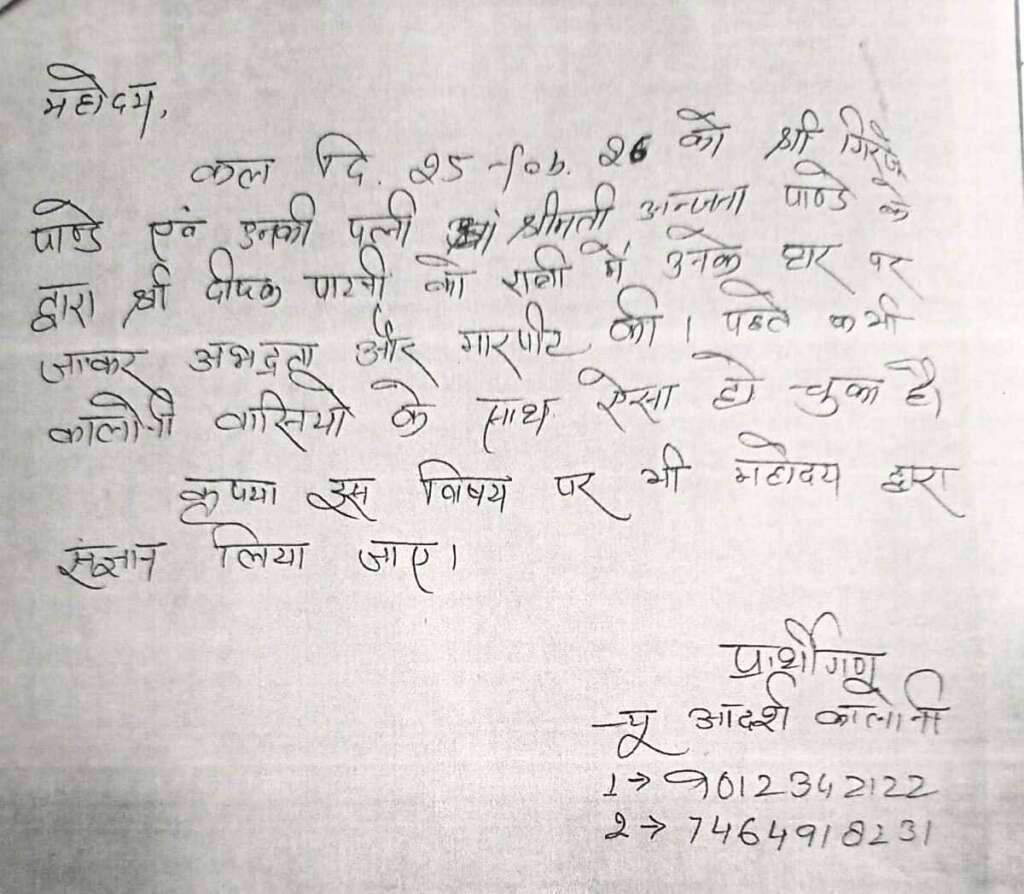 महोदय,
कल दि. 25 -feb. 26 को श्री गिरीज
पाण्डे एवं उनकी पत्नी श्रीमती अन्जना पाण्डे के
द्वारा श्री दीपक पाटनी को रात्री में उनके घर पर
जाकर अभद्रता और मारपीट की। पहले कभी
कालोनी वासियो के साथ ऐसा हो चुका है।
कृपया इस विषय पर भी महोदय द्वारा
संज्ञान लिया जाए।
प्रार्थीगण
न्यू आदर्श कालोनी
1→ 9012342122
2→ 7464918231